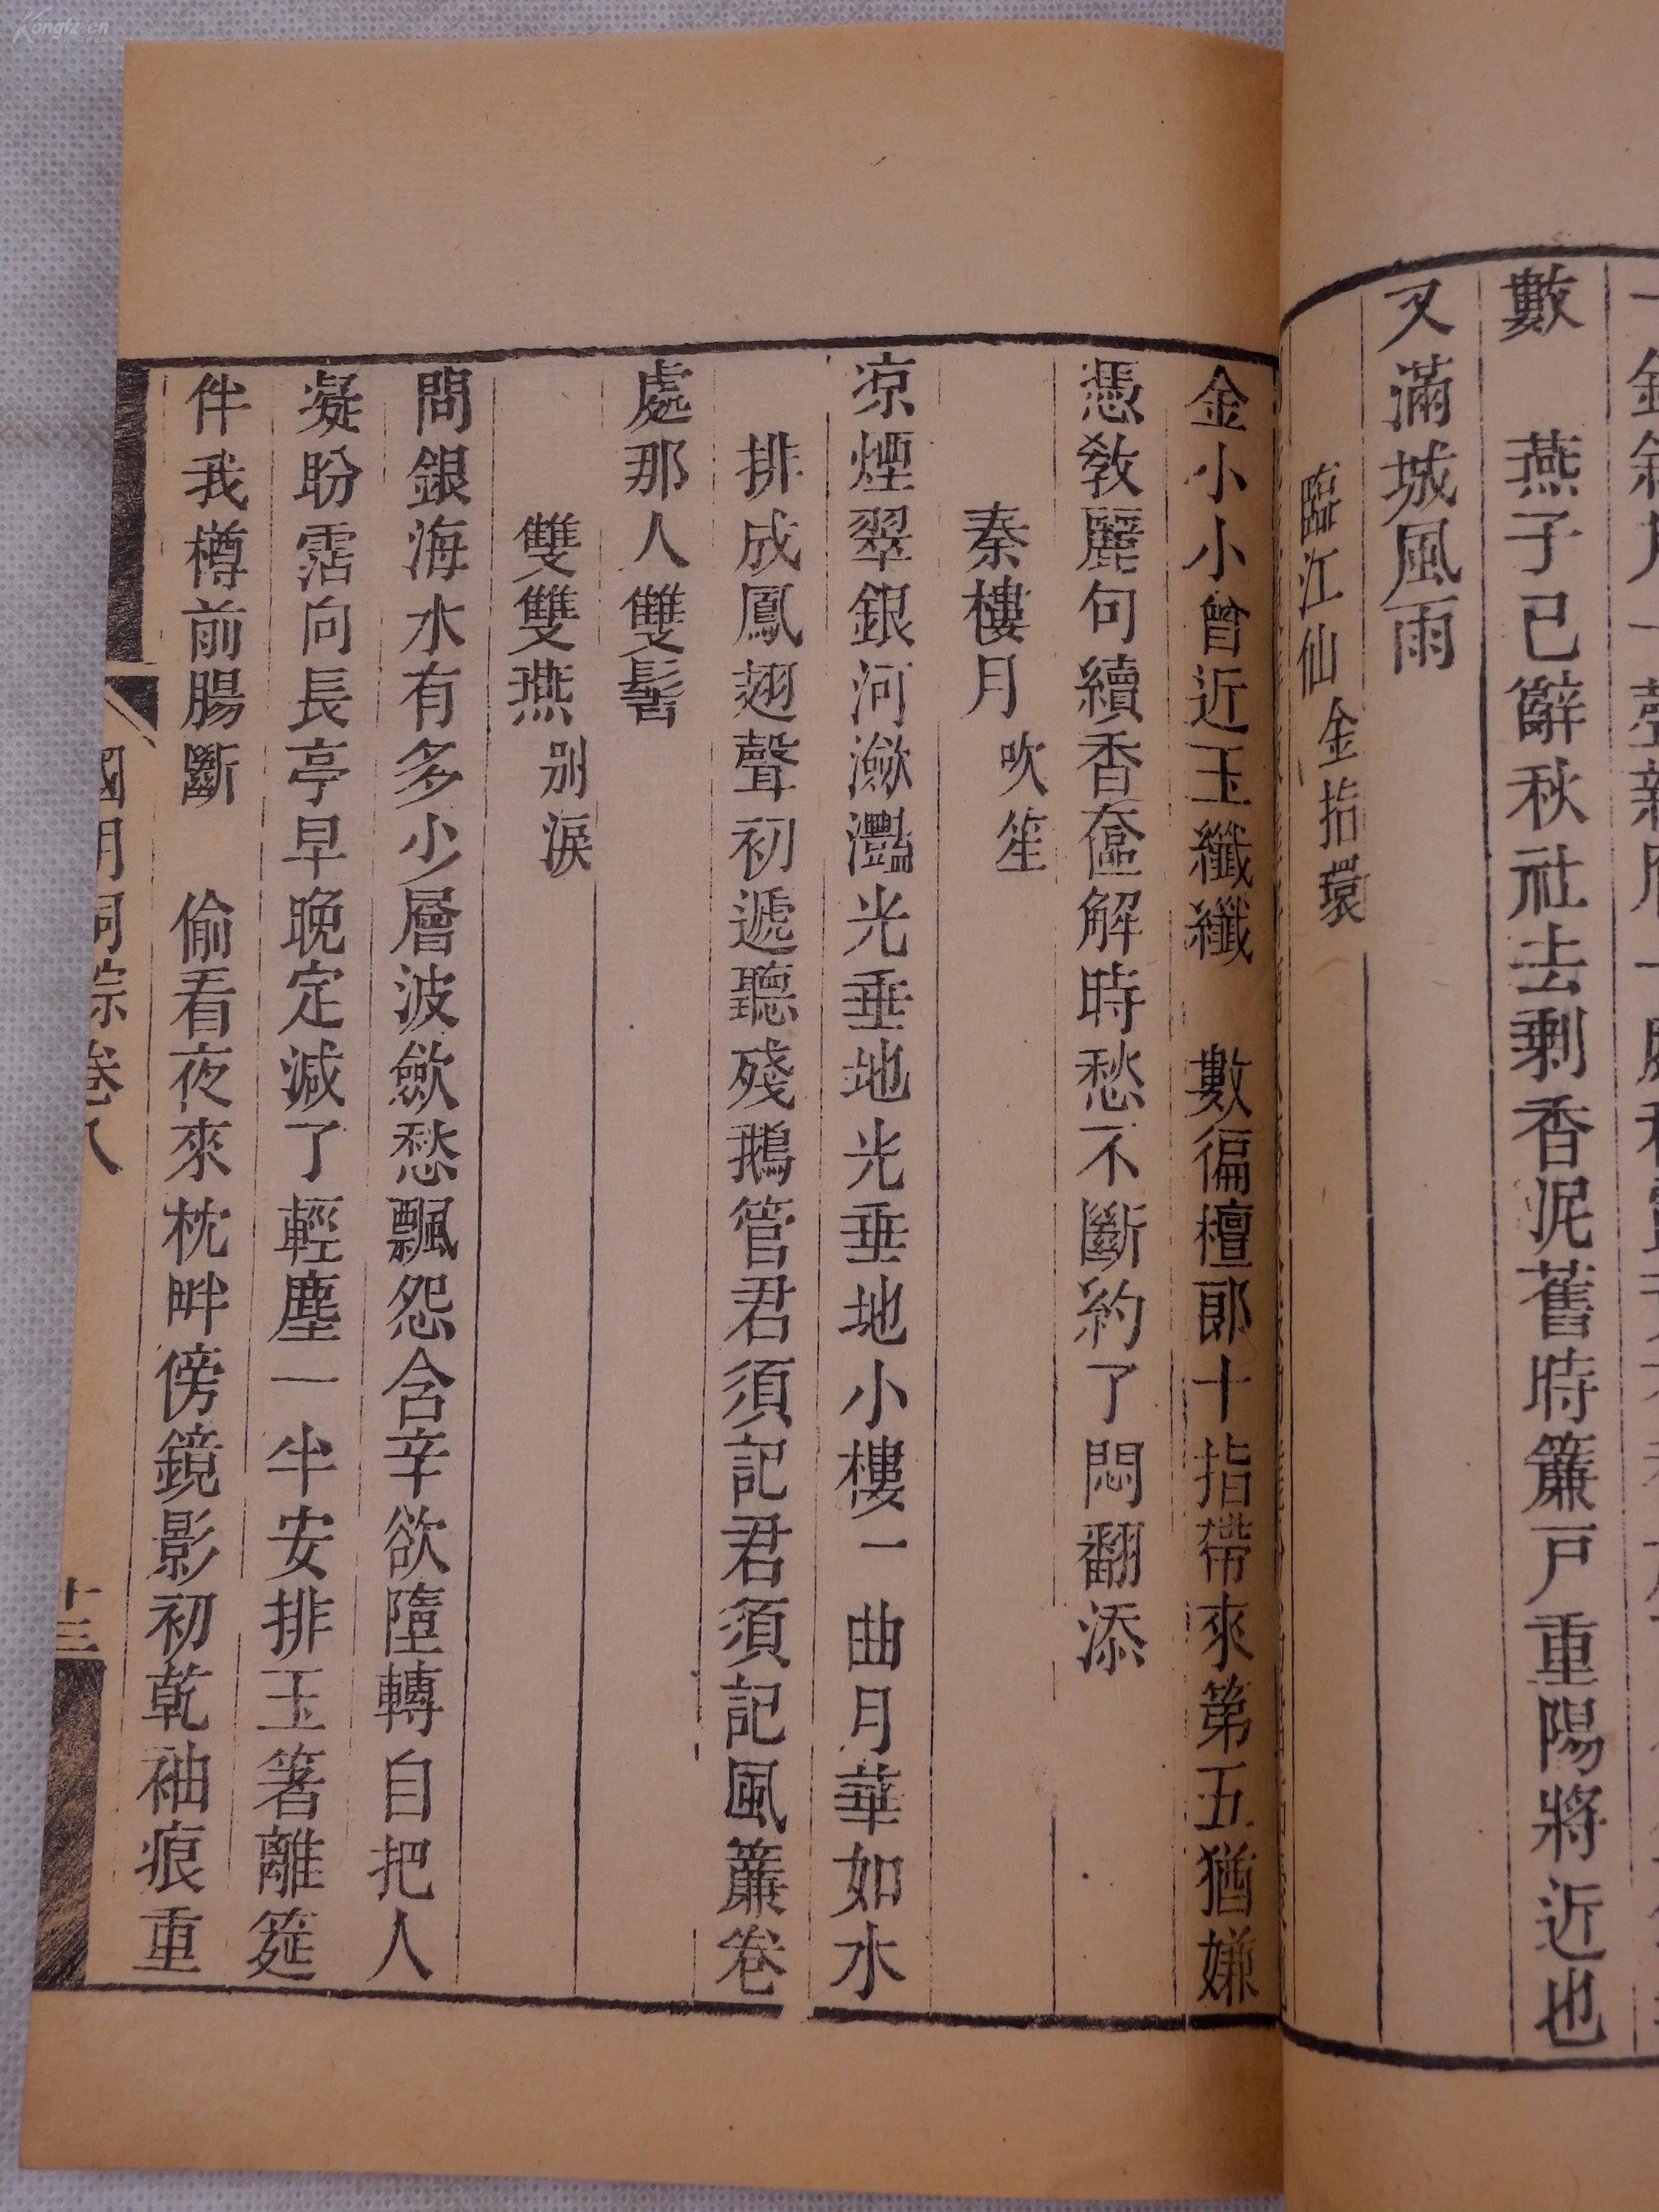 數　燕子已辭秋社去剩香泥舊時簾戸重陽將近也
又滿城風雨
臨江仙 金指環
金小小曾近玉纖纖　數徧檀郎十指帶來第五猶嫌
憑教麗句續香奩解時愁不斷約了悶翻添
秦樓月 吹笙
凉煙翠銀河瀲灩光垂地光垂地小樓一曲月華如水
排成鳳翅聲初遞聽殘鵝管君須記君須記風簾卷
處那人雙髻
雙雙燕 別淚
問銀海水有多少層波歛愁飄怨含辛欲墮轉自把人
凝盼霑向長亭早晚定減了輕塵一半安排玉箸離筵
伴我樽前腸斷　偷看夜來枕畔傍鏡影初乾袖痕重
國朝詞綜卷八
十三
Kongfz.cn